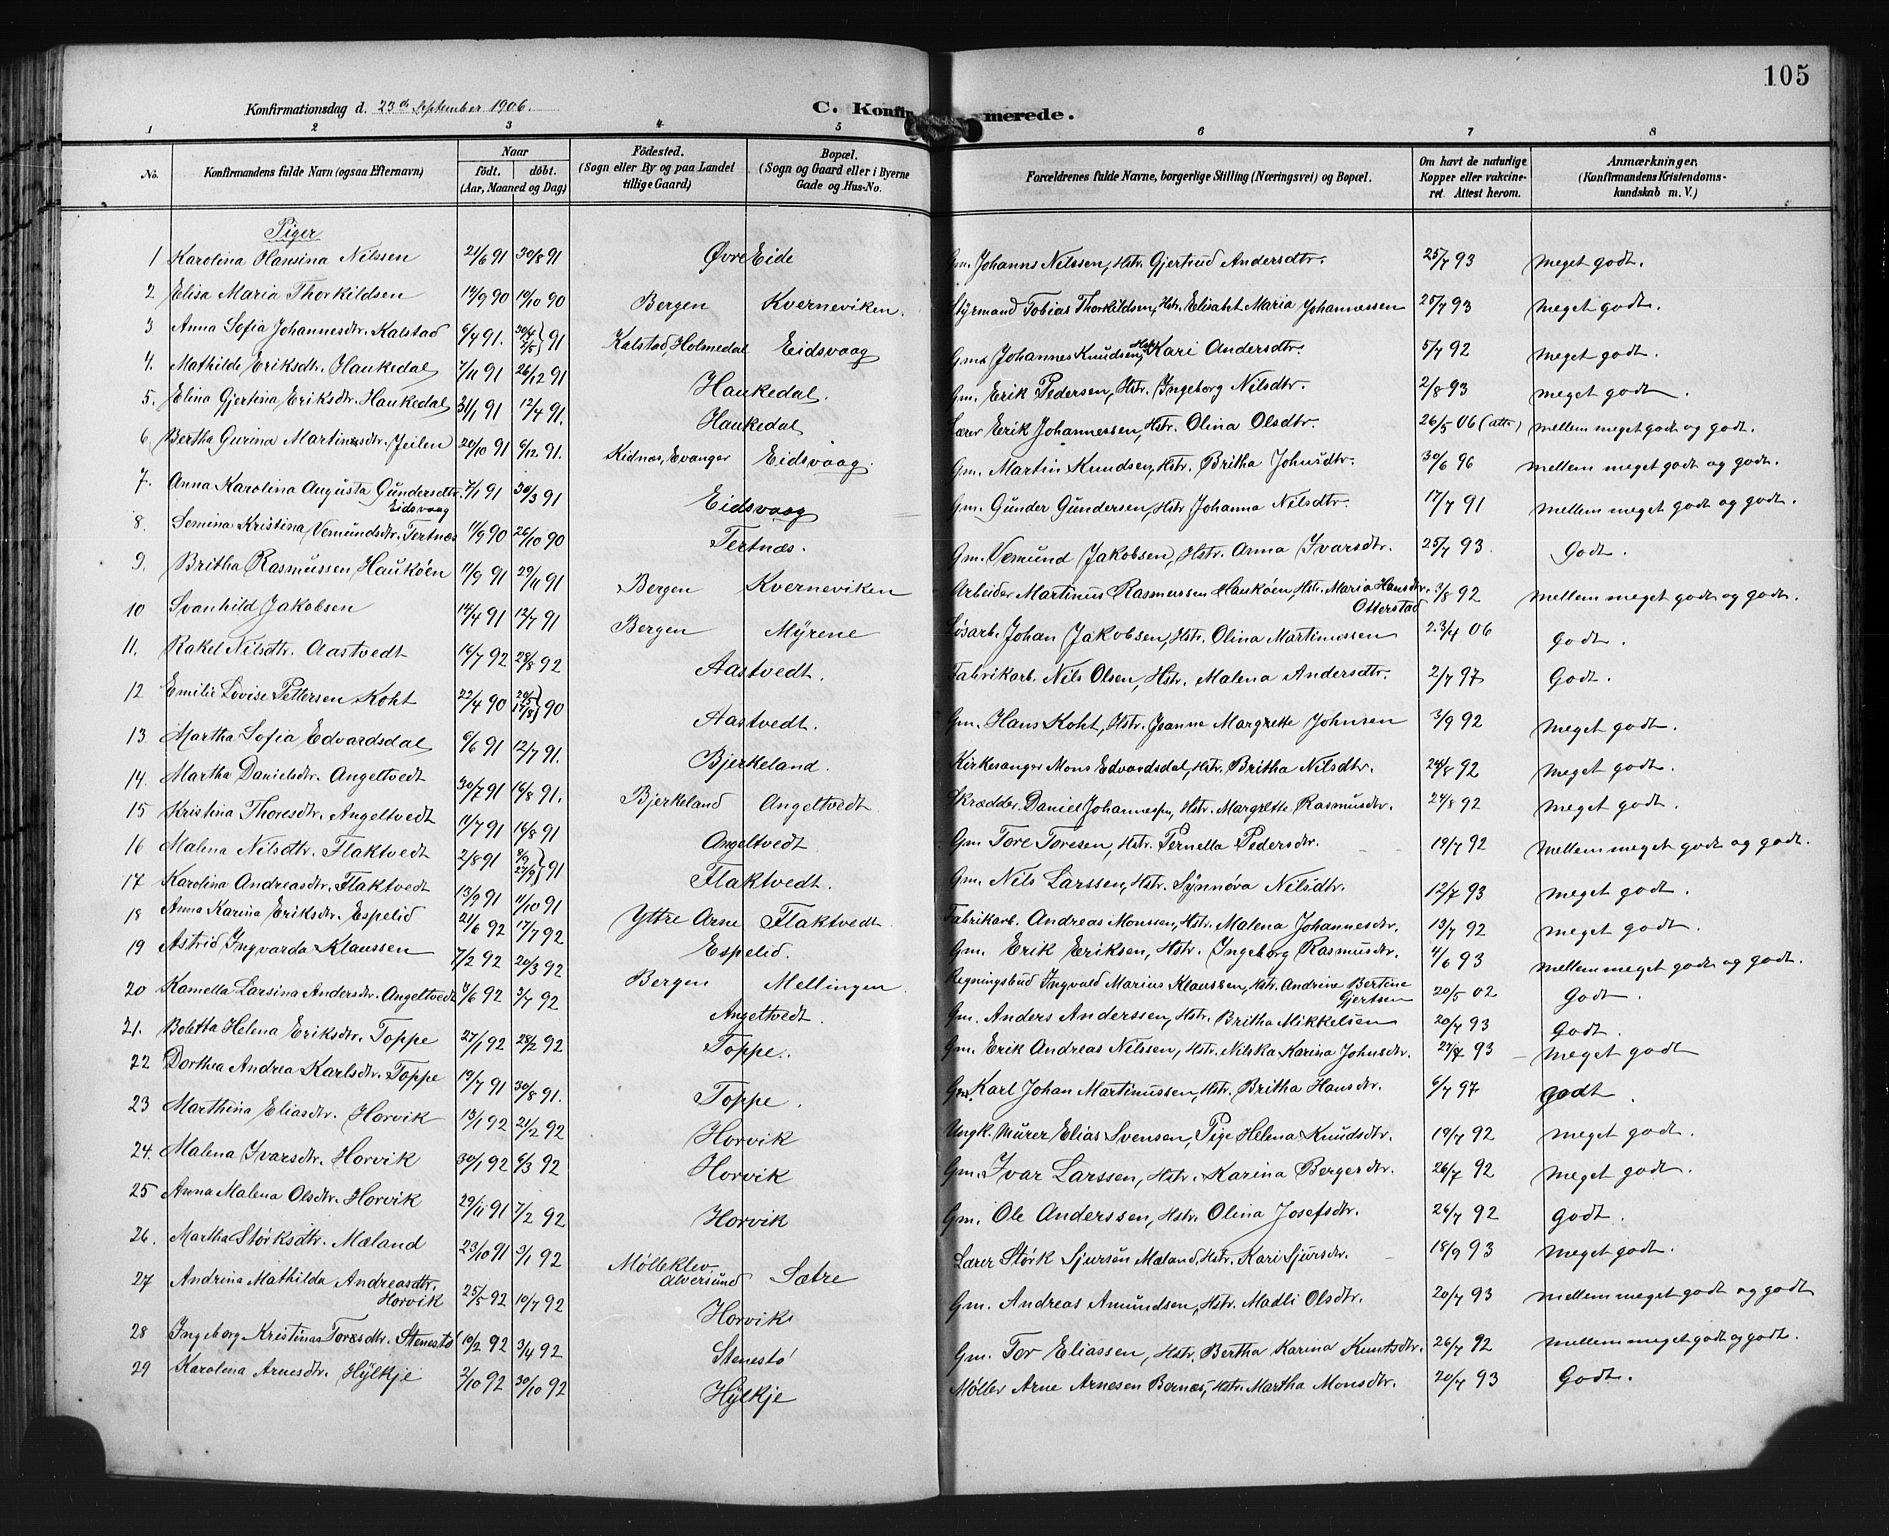 105
Konfirmationsdag d. 23de September 1906.
C. Konfir merede.
1 2 3 4 5 6 7 8
No. Konfirmandens fulde Navn (ogsaa Efternavn) Naar født. døbt. (Aar, Maaned og Dag) Fødested. (Sogn eller By og paa Landet tillige Gaard) Bopæl. (Sogn og Gaard eller i Byerne Gade og Hus-No. Forældrenes fulde Navne, borgerlige Stilling (Næringsvei) og Bopæl. Om havt de naturlige Kopper eller vakcineret. Attest herom. Anmærkninger. (Konfirmandens Kristendomskundskab m. V.)
Piger
1 Karolina Hansina Nilssen 21/6 91 30/8 91 Øvre Eide Gm. Johanns Nilssen, Hstr. Gjertrud Andersdtr. 25/7 93 meget godt.
2 Elisa Maria Thorkildsen 14/9 90 19/10 90 Bergen Kverneviken. Styrmand Tobias Thorkildsen, Hstr. Elisabet Maria Johannessen 25/7 93 meget godt.
3 Anna Sofia Johannesdtr. Kalstad 6/4 91. 30/4 7/5 } 91 Kalstad, Holmedal Eidsvaag Gm. Johannes Knudsen, Hstr. Kari Andersdtr. 5/7 92 meget godt.
4. Mathilde Eriksdtr. Haukedal 7/11 91 26/12 91 Haukedal. Gm. Erik Pedersen, Hstr. Ingeborg Nilsdtr. 2/8 93 meget godt.
5. Elina Gjertina Eriksdtr. Haukedal 31/1 91 12/4 91. Haukedal Lærer Erik Johannessen, Hstr. Olina Olsdtr. 26/5 06 (atts) mellem meget godt og godt.
6. Bertha Gurina Martinusdtr. Jeilen 20/10 91 6/12 91. Kidnæs, Evanger Eidsvaag. Gm. Martin Knudsen, Hstr. Britha Johnsdtr. 30/6 96 mellem meget godt og godt.
7. Anna Karolina Augusta Gundersdtr. Eidsvaag 7/1 91 30/3 91 Eidsvaag Gm. Gunder Gundersen, Hstr Johanna Nilsdtr. 17/7 91 mellem meget godt og godt.
8. Semina Kristina Vemundsdtr. Tertnæs 11/9 90 26/10 90 Tertnæs. Gm. Vemund Jakobsen, Hstr. Anna Ivarsdtr. 25/7 93. Godt.
9. Britha Rasmussen Haukøen 11/9 91 29/11 91 Bergen Kverneviken Arbeider Martinus Rasmussen Haukøen, Hstr. Maria Hansdtr. Otterstad 3/8 92 mellem meget godt og godt.
10 Svanhild Jakobsen 14/4 91 12/7 91 Bergen Myrene Løsarb. Johan Jakobsen, Hstr. Olina Martinussen 23/4 06 godt.
11. Rakel Nilsdtr. Aastvedt 14/7 92 28/8 92 Aastvedt. Fabrikarb. Nils Olsen, Hstr. Malena Andersdtr. 2/7 97 Godt.
12 Emilie Lovise Pettersen Koht 22/4 90 90 Aastvedt. Gm. Hans Koht, Hstr. Jeanne Margrette Johnsen 3/9 92 meget godt.
13 Martha Sofia Edvardsdal 6/6 91 12/7 91. Bjerkeland. Kirkesanger Mons Edvardsdal, Hstr. Britha Nilsdtr. 24/8 92 meget godt.
14. Martha Danielsdtr. Angeltvedt 30/7 91 16/8 91. Bjerkeland Angeltvedt. Skrædder Daniel Johannessen, Hstr. Margrette Rasmusdtr. 24/8 92 meget godt.
15 Kristina Thoresdtr. Angeltvedt 11/7 91 16/8 91 Angeltvedt. Gm Tore Toresen, Hstr. Pernella Pedersdtr. 19/7 92 mellem meget godt og godt.
16 Malena Nilsdtr. Flaktvedt 2/8 91 9/9 27/9 } 91 Flaktvedt. Gm. Nils Larssen, Hstr. Synnøva Nilsdtr. 12/7 93 meget godt.
17 Karolina Andreasdtr. Flaktvedt 13/9 91 11/10 91 Yttre Arne Flaktvedt. Fabrikarb. Andreas Monssen, Hstr. Malena Johannesdtr. 13/7 92 meget godt.
18 Anna Karina Eriksdtr. Espelid 21/6 92 17/7 92 Espelid. Gm. Erik Eriksen, Hstr. Ingeborg Rasmusdtr. 4/6 93 mellem meget godt og godt.
19 Astrid Ingvarda Klaussen 7/2 92 20/3 92 Bergen Mellingen. Regningsbud Ingvald Marius Klaussen, Hstr. Andrine Bertine Gjertsen 20/5 02 Godt.
20 Kamella Larsina Andersdtr. Angeltvedt 4/6 92 3/7 92 Angeltvedt. Gm. Anders Anderssen, Hstr. Britha Mikkelsen 20/7 93 Godt.
21. Boletta Helena Eriksdtr. Toppe 27/1 92 28/2 92 Toppe. Gm. Erik Andreas Nilssen, Hstr. Nilska Karina Johnsdtr. 27/7 93 meget godt
22 Dorthea Andrea Karlsdtr. Toppe 19/7 91 30/8 91. Toppe. Gm. Karl Johan Martinussen, Hstr. Britha Hansdtr. 6/7 97 godt.
23 Marthina Eliasdtr. Horvik 13/1 92 21/2 92 Horvik Ungk. Murer Elias Svensen, Pige Helena Knudsdtr. 19/7 92 meget godt.
24. Malena Ivarsdtr. Horvik 30/1 92 6/3 92 Horvik Gm. Ivar Larssen, Hstr. Karina Bergesdtr. 26/7 92 meget godt.
25 Anna Malena Olsdtr. Horvik 29/11 91 7/2 92 Horvik Gm. Ole Anderssen, Hstr. Olina Josefsdtr. 26/7 92 godt.
26. Martha Størksdtr. Mæland 23/10 91 3/1 92 Mølleklev Alversund Sætre Lærer Størk Sjursøn Mæland, Hstr. Kari Sjursdtr. 18/9 93 meget godt.
27 Andrina Mathilda Andreasdtr. Horvik 25/5 92 10/7 92 Horvik Gm. Andreas Amundsen, Hstr. Madli Olsdtr. 20/7 93 mellem meget godt og godt
28 Ingeborg Kristina Toresdtr. Stenestø 19/2 92 3/4 92 Stenestø Gm. Tor Eliassen, Hstr. Bertha Karina Knutsdtr. 26/7 92 mellem meget godt og godt.
29 Karolina Arnesdtr. Hylkje 2/10 92 30/10 92 Hylkje Møller Arne Arnesen Bernæs, Hstr. Martha Monsdtr. 20/7 93 Godt.